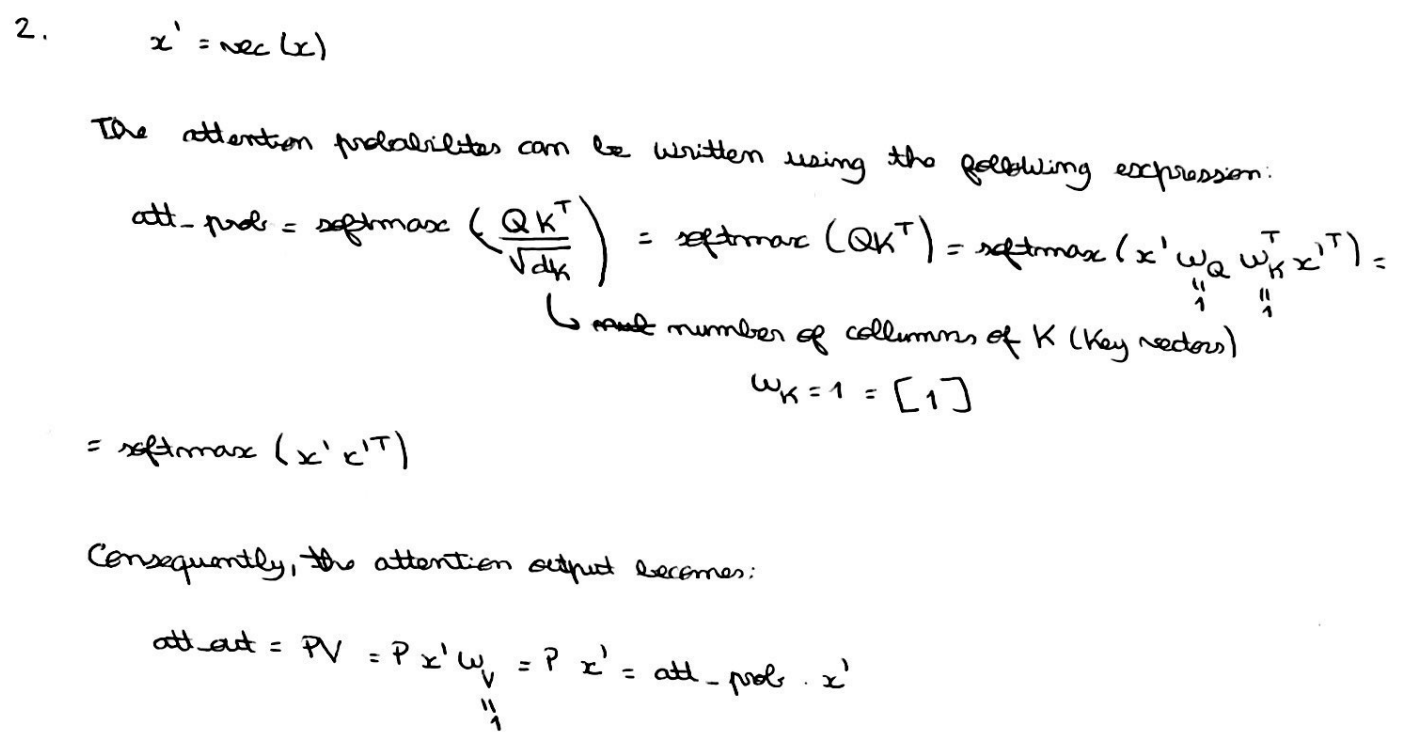 2. x' = vec(x)
The attention probabilites can be written using the following expression:
att_prob = softmax (QK^T / √dK) = softmax (QK^T) = softmax (x' ωQ ωK^T x'^T) =
" "
1 1
↳ number of collumns of K (Key vectors)
ωK = 1 = [1]
= softmax (x' x'^T)
Consequently, the attention output becomes:
att_out = PV = P x' ωV = P x' = att_prob . x'
"
1